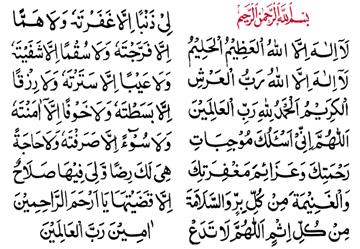 بسم الله الرحمن الرحيم
لَا اِلٰهَ اِلَّا اللهُ الْعَظِيْمُ الْحَلِيْمُ
لَا اِلٰهَ اِلَّا اللهُ رَبُّ الْعَرْشِ
الْكَرِيْمِ اَلْحَمْدُ لِلّٰهِ رَبِّ الْعَالَمِيْنَ
اَللّٰهُمَّ اِنِّىْ اَسْئَلُكَ مُوْجِبَاتِ
رَحْمَتِكَ وَعَزَائِمَ مَغْفِرَتِكَ
وَالْغَنِيْمَةَ مِنْ كُلِّ بِرٍّ وَالسَّلَامَةَ
مِنْ كُلِّ اِثْمٍ اَللّٰهُمَّ لَا تَدَعْ
لِىْ ذَنْبًا اِلَّا غَفَرْتَهٗ وَلَا هَمًّا
اِلَّا فَرَّجْتَهٗ وَلَا سُقْمًا اِلَّا شَفَيْتَهٗ
وَلَا عَيْبًا اِلَّا سَتَرْتَهٗ وَلَا رِزْقًا
اِلَّا بَسَطْتَهٗ وَلَا خَوْفًا اِلَّا اٰمَنْتَهٗ
وَلَا سُوْٓءً اِلَّا صَرَفْتَهٗ وَلَا حَاجَةً
هِىَ لَكَ رِضًا وَلِىَ فِيْهَا صَلَاحٌ
اِلَّا قَضَيْتَهَا يَا اَرْحَمَ الرَّاحِمِيْنَ
اٰمِيْنَ رَبَّ الْعَالَمِيْنَ